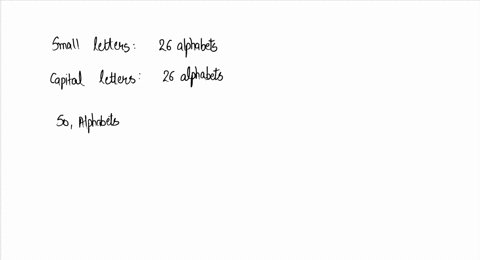 Small letters: 26 alphabets
Capital letters: 26 alphabets
So, Alphabets